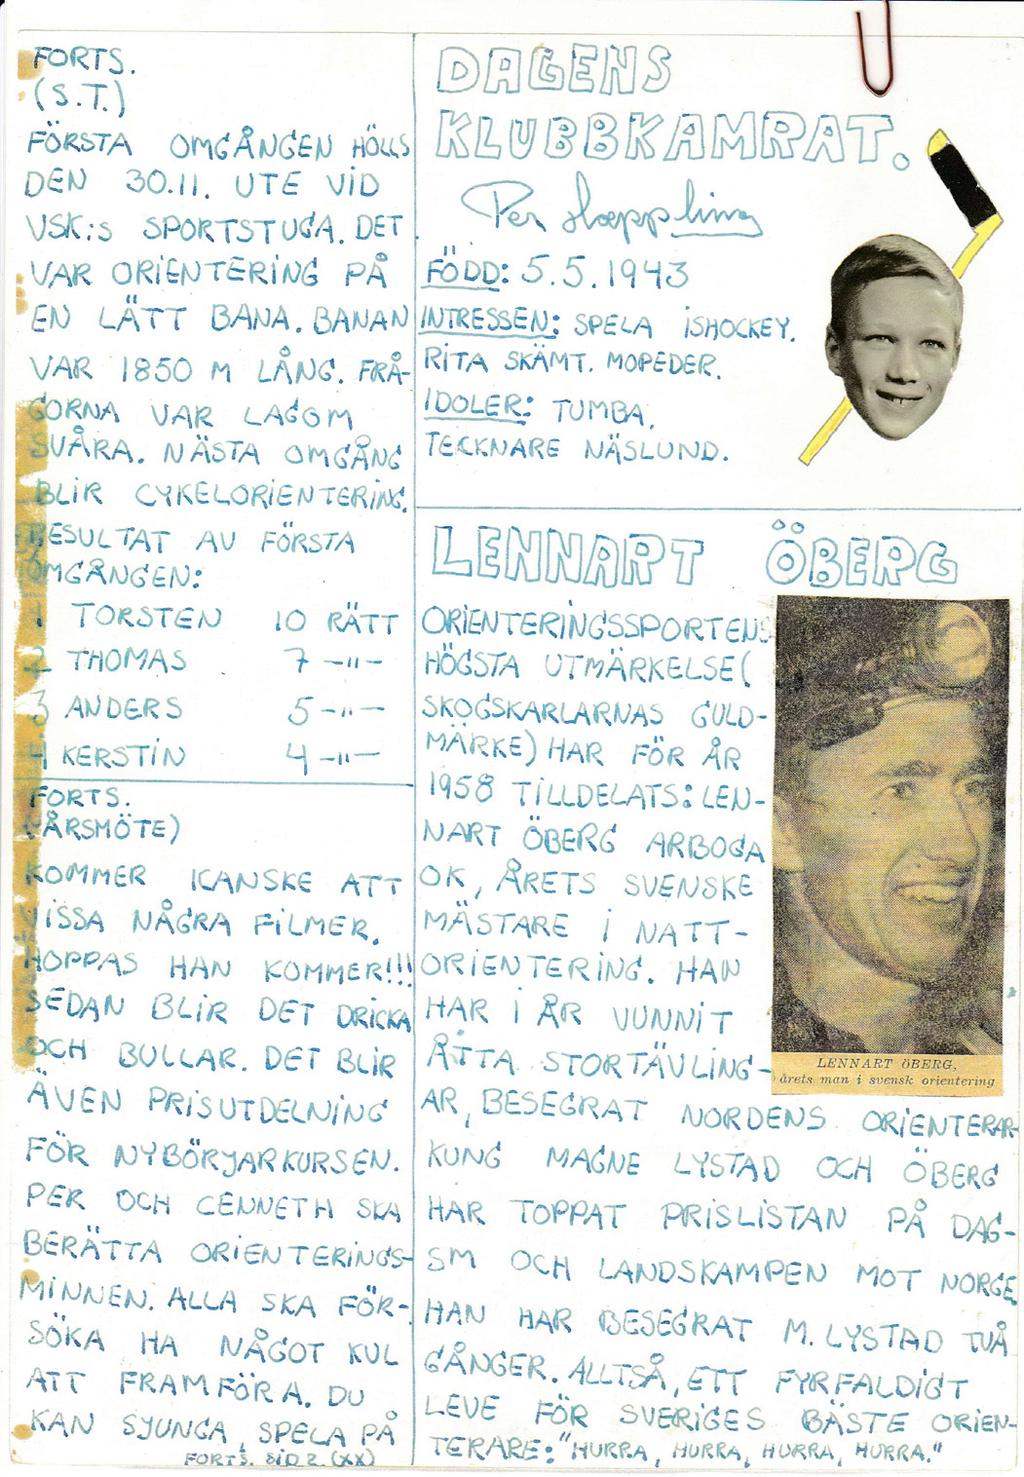 FORTS.
(S.T.)
FÖRSTA OMGÅNGEN HÖLLS
DEN 30.11. UTE VID
VSK:S SPORTSTUGA. DET
VAR ORIENTERING PÅ
EN LÄTT BANA. BANAN
VAR 1850 M LÅNG. FRÅ-
GORNA VAR LAGOM
SVÅRA. NÄSTA OMGÅNG
BLIR CYKELORIENTERING.
RESULTAT AV FÖRSTA
OMGÅNGEN:
1 TORSTEN 10 RÄTT
2 THOMAS 7 -"-
3 ANDERS 5 -"-
4 KERSTIN 4 -"-
FORTS.
(ÅRSMÖTE)
KOMMER KANSKE ATT
VISSA NÅGRA FILMER.
HOPPAS HAN KOMMER!!!
SEDAN BLIR DET DRICKA
OCH BULLAR. DET BLIR
ÄVEN PRISUTDELNING
FÖR NYBÖRJARKURSEN.
PER OCH CENNETH SKA
BERÄTTA ORIENTERINGS-
MINNEN. ALLA SKA FÖR-
SÖKA HA NÅGOT KUL
ATT FRAMFÖRA. DU
KAN SJUNGA, SPELA PÅ
FORTS. SID 2. (XX)
DAGENS
KLUBBKAMRAT.
Per
FÖDD: 5.5.1943
INTRESSEN: SPELA ISHOCKEY.
RITA SKÄMT. MOPEDER.
IDOLER: TUMBA.
TECKNARE NÄSLUND.
LENNART ÖBERG
ORIENTERINGSSPORTENS
HÖGSTA UTMÄRKELSE(
SKOGSKARLARNAS GULD-
MÄRKE) HAR FÖR ÅR
1958 TILLDELATS: LEN-
NART ÖBERG ARBOGA
OK, ÅRETS SVENSKE
MÄSTARE I NATT-
ORIENTERING. HAN
HAR I ÅR VUNNIT
ÅTTA STORTÄVLING-
AR, BESEGRAT NORDENS ORIENTERAR-
KUNG MAGNE LYSTAD OCH ÖBERG
HAR TOPPAT PRISLISTAN PÅ DAG-
SM OCH LANDSKAMPEN MOT NORGE.
HAN HAR BESEGRAT M. LYSTAD TVÅ
GÅNGER. ALLTSÅ, ETT FYRFALDIGT
LEVE FÖR SVERIGES BÄSTE ORIEN-
TERARE: "HURRA, HURRA, HURRA, HURRA."
LENNART ÖBERG,
årets man i svensk orientering